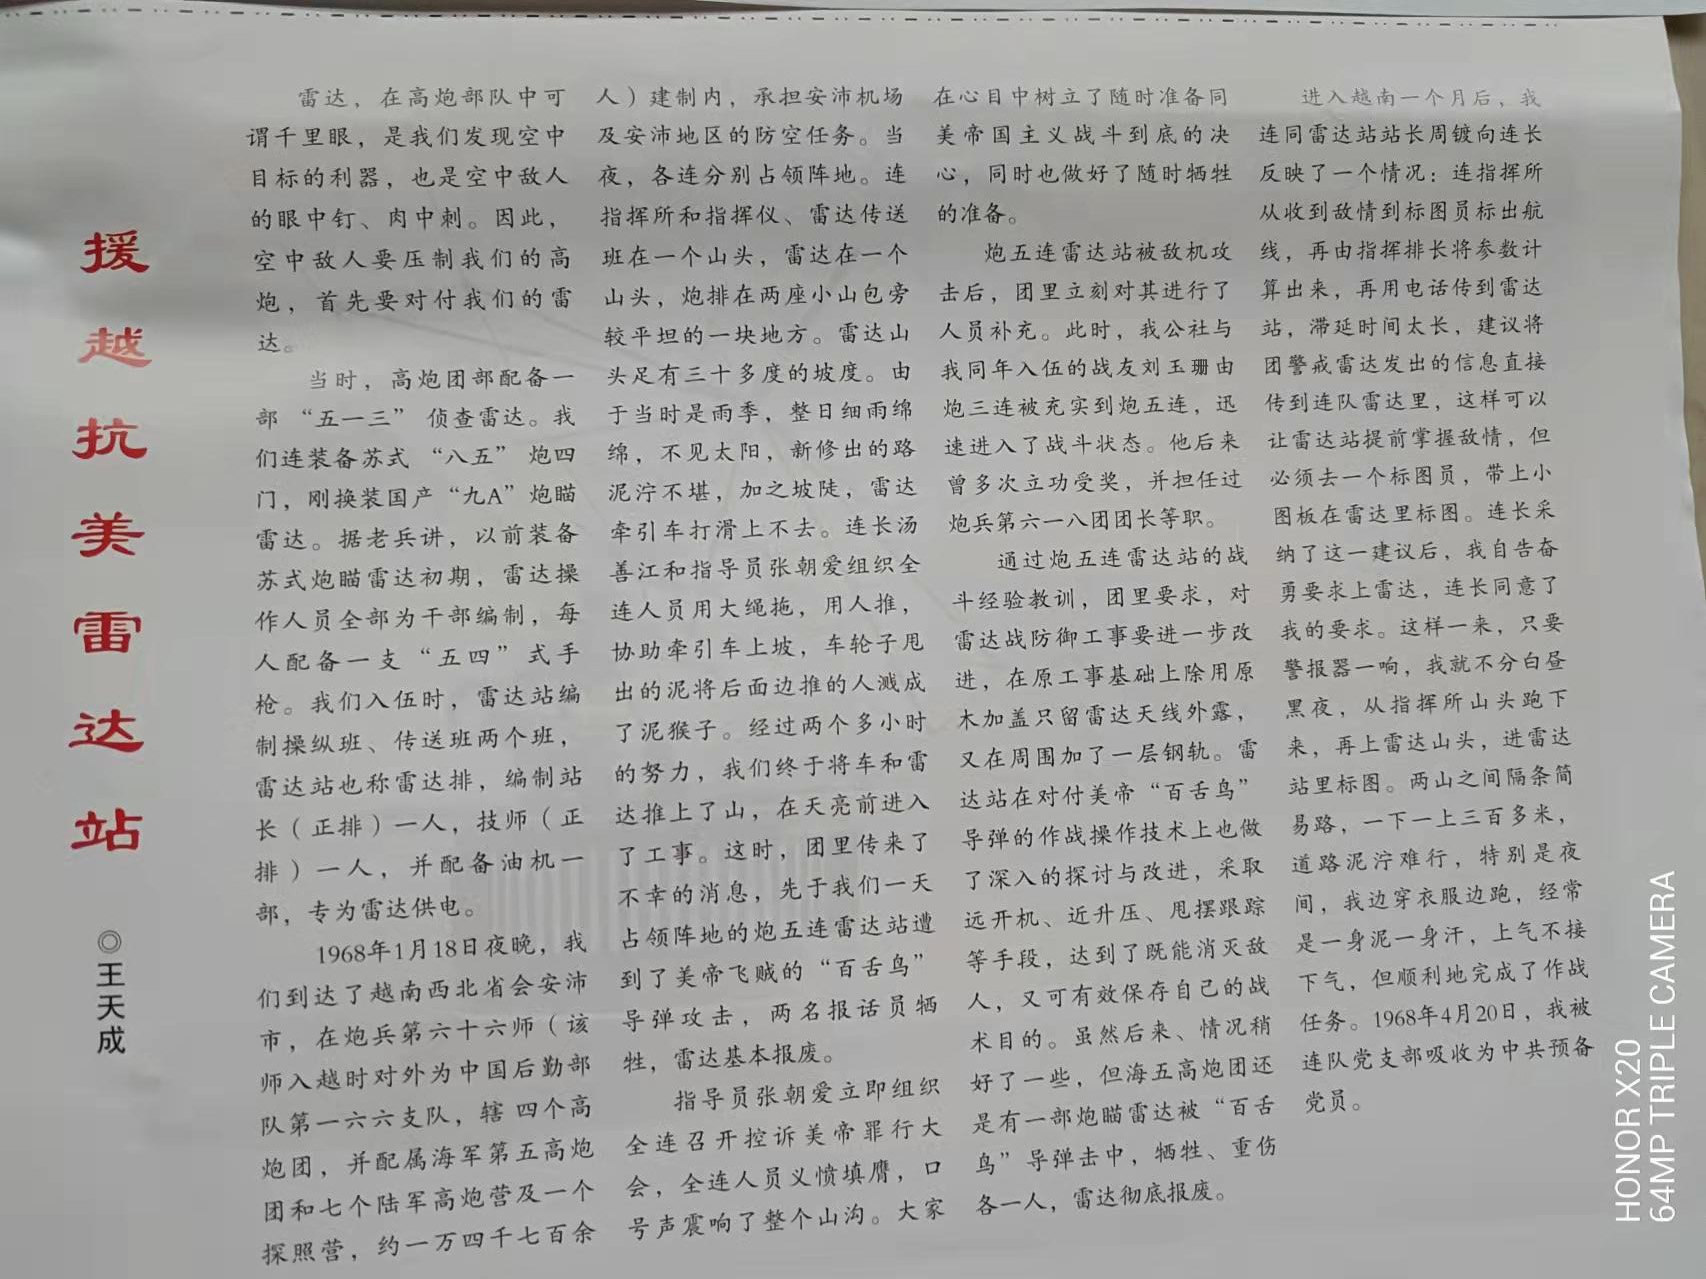 援越抗美雷达站
◎王天成
雷达，在高炮部队中可
谓千里眼，是我们发现空中
目标的利器，也是空中敌人
的眼中钉、肉中刺。因此，
空中敌人要压制我们的高
炮，首先要对付我们的雷
达。
当时，高炮团部配备一
部“五一三”侦查雷达。我
们连装备苏式“八五”炮四
门，刚换装国产“九A”炮瞄
雷达。据老兵讲，以前装备
苏式炮瞄雷达初期，雷达操
作人员全部为干部编制，每
人配备一支“五四”式手
枪。我们入伍时，雷达站编
制操纵班、传送班两个班，
雷达站也称雷达排，编制站
长（正排）一人，技师（正
排）一人，并配备油机一
部，专为雷达供电。
1968年1月18日夜晚，我
们到达了越南西北省会安沛
市，在炮兵第六十六师（该
师入越时对外为中国后勤部
队第一六六支队，辖 四个高
炮团，并配属海军第五高炮
团和七个陆军高炮营及一个
探照营，约一万四千七百余
人）建制内，承担安沛机场
及安沛地区的防空任务。当
夜，各连分别占领阵地。连
指挥所和指挥仪、雷达传送
班在一个山头，雷达在一个
山头，炮排在两座小山包旁
较平坦的一块地方。雷达山
头足有三十多度的坡度。由
于当时是雨季，整日细雨绵
绵，不见太阳，新修出的路
泥泞不堪，加之坡陡，雷达
牵引车打滑上不去。连长汤
善江和指导员张朝爱组织全
连人员用大绳拖，用人推，
协助牵引车上坡，车轮子甩
出的泥将后面边推的人溅成
了泥猴子。经过两个多小时
的努力，我们终于将车和雷
达推上了山，在天亮前进入
了工事。这时，团里传来了
不幸的消息，先于我们一天
占领阵地的炮五连雷达站遭
到了美帝飞贼的“百舌鸟”
导弹攻击，两名报话员牺
牲，雷达基本报废。
指导员张朝爱立即组织
全连召开控诉美帝罪行大
会，全连人员义愤填膺，口
号声震响了整个山沟。大家
在心目中树立了随时准备同
美帝国主义战斗到底的决
心，同时也做好了随时牺牲
的准备。
炮五连雷达站被敌机攻
击后，团里立刻对其进行了
人员补充。此时，我公社与
我同年入伍的战友刘玉珊由
炮三连被充实到炮五连，迅
速进入了战斗状态。他后来
曾多次立功受奖，并担任过
炮兵第六一八团团长等职。
通过炮五连雷达站的战
斗经验教训，团里要求，对
雷达战防御工事要进一步改
进，在原工事基础上除用原
木加盖只留雷达天线外露，
又在周围加了一层钢轨。雷
达站在对付美帝“百舌鸟”
导弹的作战操作技术上也做
了深入的探讨与改进，采取
远开机、近升压、甩摆跟踪
等手段，达到了既能消灭敌
人，又可有效保存自己的战
术目的。虽然后来、情况稍
好了一些，但海五高炮团还
是有一部炮瞄雷达被“百舌
鸟”导弹击中，牺牲、重伤
各一人，雷达彻底报废。
进入越南一个月后，我
连同雷达站站长周镀向连长
反映了一个情况：连指挥所
从收到敌情到标图员标出航
线，再由指挥排长将参数计
算出来，再用电话传到雷达
站，滞延时间太长，建议将
团警戒雷达发出的信息直接
传到连队雷达里，这样可以
让雷达站提前掌握敌情，但
必须去一个标图员，带上小
图板在雷达里标图。连长采
纳了这一建议后，我自告奋
勇要求上雷达，连长同意了
我的要求。这样一来，只要
警报器一响，我就不分白昼
黑夜，从指挥所山头跑下
来，再上雷达山头，进雷达
站里标图。两山之间隔条简
易路，一下一上三百多米，
道路泥泞难行，特别是夜
间，我边穿衣服边跑，经常
是一身泥一身汗，上气不接
下气，但顺利地完成了作战
任务。1968年4月20日，我被
连队党支部吸收为中共预备
党员。
HONOR X20
64MP TRIPLE CAMERA